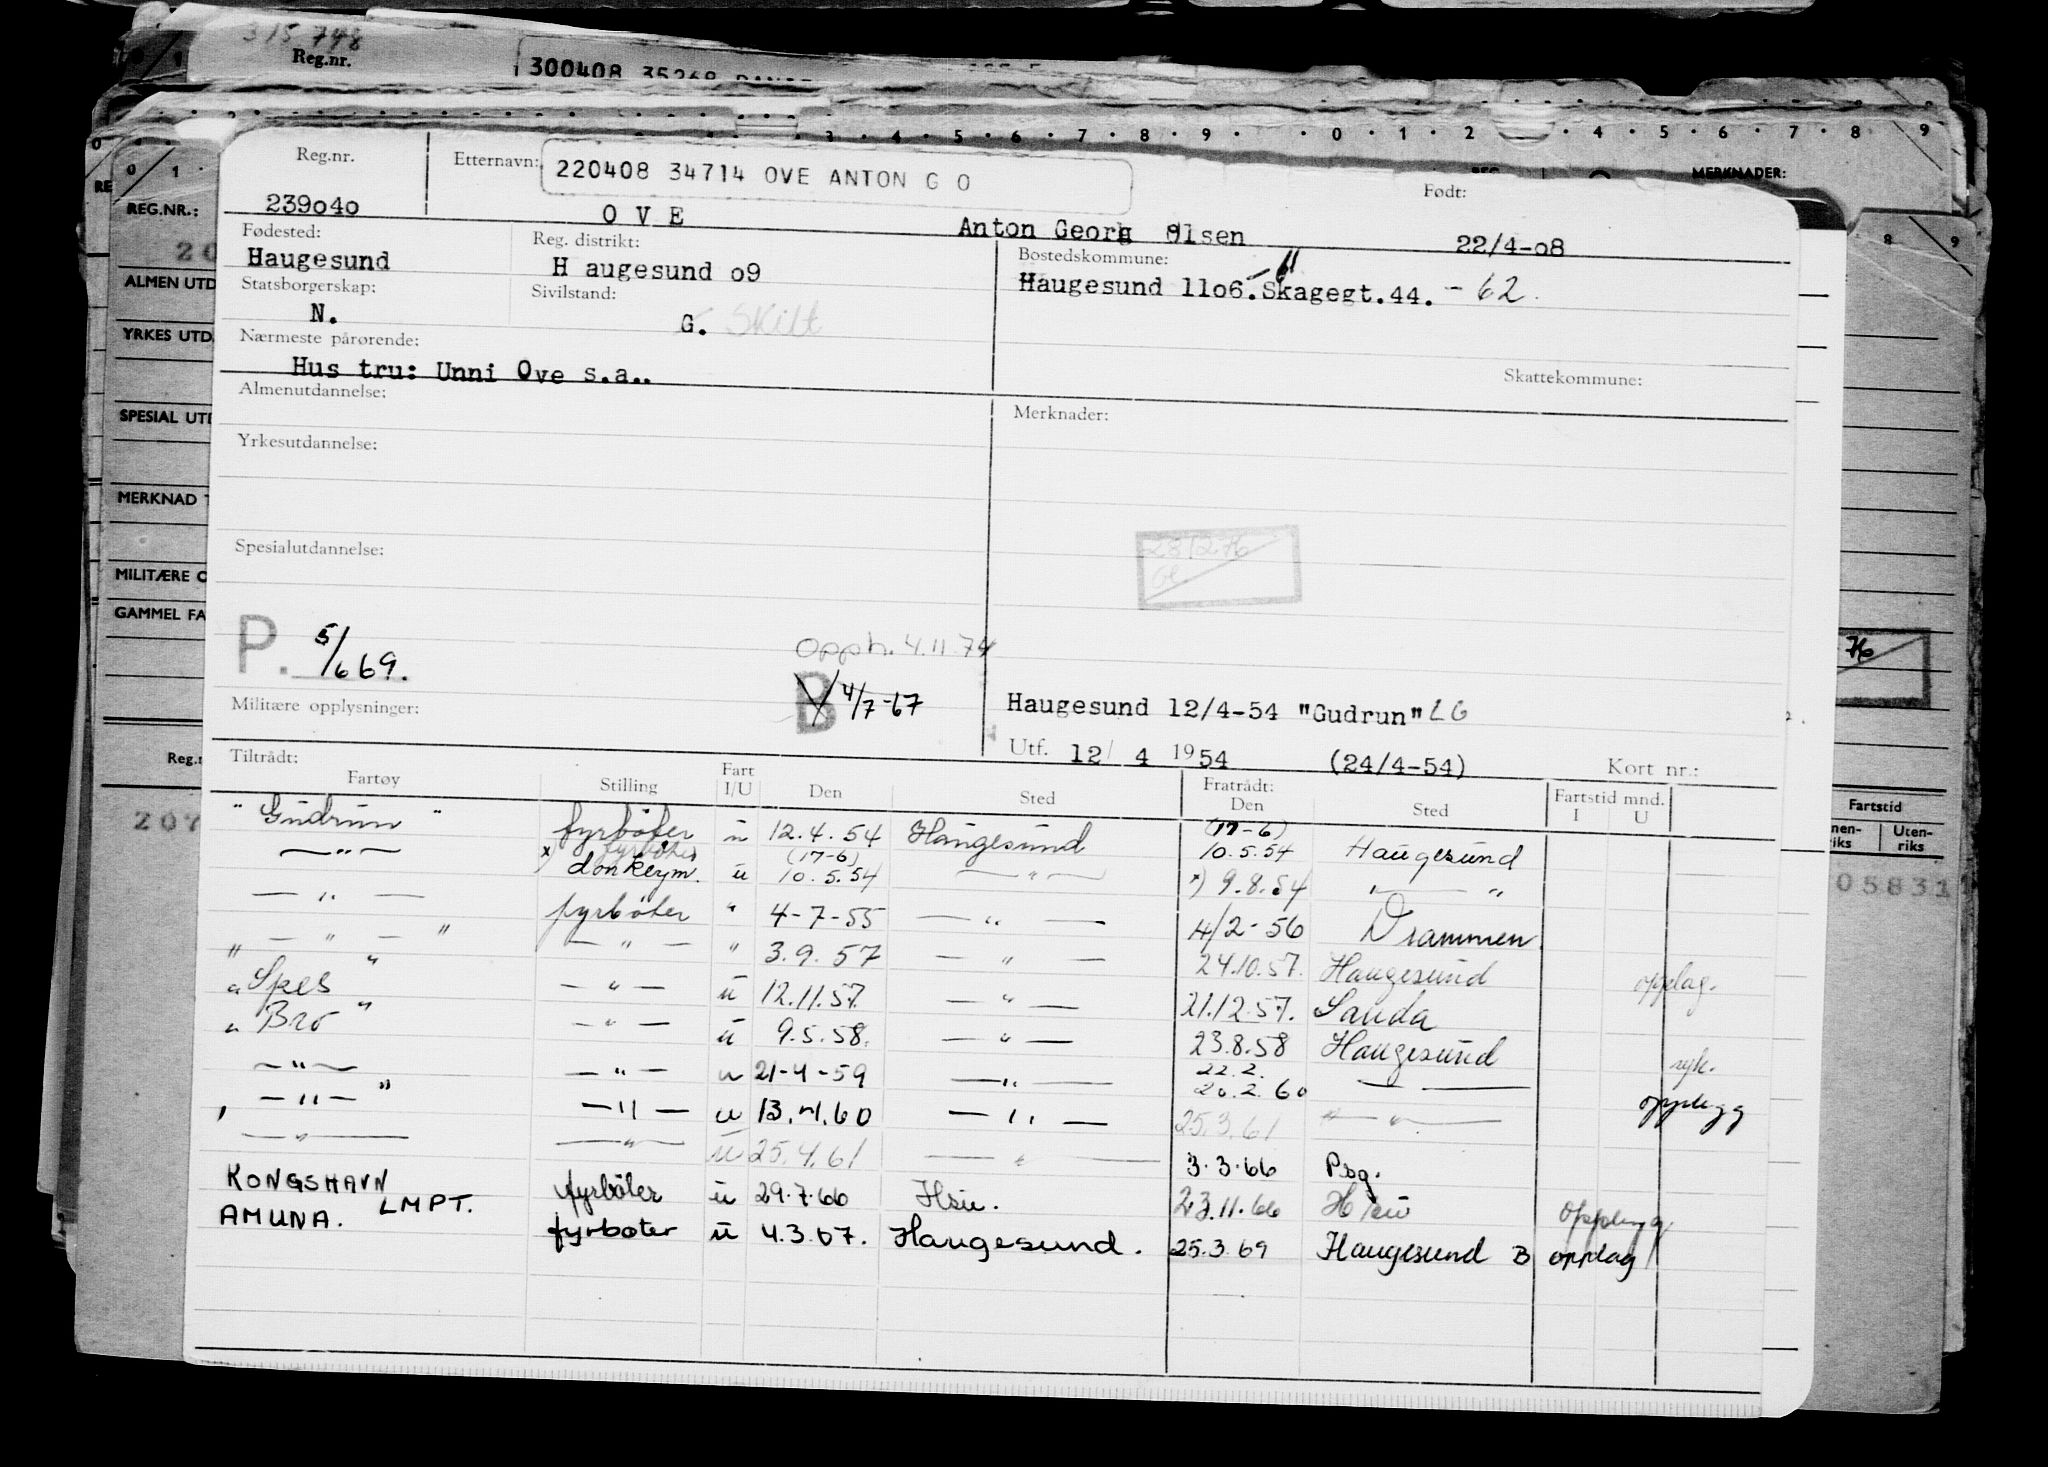 315 748
Reg.nr.
300408 35268
3 · 4 · 5 · 6 · 7 · 8 · 9 · 0 · 1 · 2 · 4 · 5 · 6 · 7 · 8 · 9
0 · 1 ·
MERKNADER:
REG.NR.:
ALMEN UTD
YRKES UTD.
SPESIAL UTD
MERKNAD T
MILITÆRE O
GAMMEL FA
Reg.nr
207
Fartstid
Uten-
riks
05831
Reg.nr.
239o4o
Etternavn:
220408 34714 OVE ANTON G O
O V E
Anton Georg Olsen
Født:
22/4-o8
Fødested:
Haugesund
Reg. distrikt:
H augesund o9
Bostedskommune:
Haugesund 11o6. Skagegt.44. - 62.
-61
Statsborgerskap:
N.
Sivilstand:
G. Skilt
Nærmeste pårørende:
Hus tru: Unni Ove s.a..
Skattekommune:
Almenutdannelse:
Merknader:
Yrkesutdannelse:
Spesialutdannelse:
281276
P. 5/6 69.
Opph. 4.11.74
B 4/7-67
Militære opplysninger:
Haugesund 12/4-54 "Gudrun" LG
Utf. 12/ 4 1954 (24/4-54) Kort nr.:
Tiltrådt:
Fartøy Stilling Fart I/U Den Sted Fratrådt: Den Sted Fartstid mnd. I U
"Gudrun" fyrböter u 12.4.54 Haugesund (17-6) 10.5.54 Haugesund
— " — x) fyrböter donkeym. u (17-6) 10.5.54 — " — x) 9.8.54 — " —
— " — fyrböter " 4-7-55 — " — 4/2-56 Drammen
" — " — " — " — " 3.9.57 — " — 24.10.57. Haugesund opplag.
" Spes " — " — u 12.11.57. — " — 21.12.57. Sauda
" Bro " — " — u 9.5.58. — " — 23.8.58 Haugesund syk.
— " — — " — u 21-4-59 — " — 22.2. 20.2.60 — — opplegg
" — " — " — " — u 13.4.60 — " — 25.3.61 — " —
— " — — " — u 25.4.61 — " — 3.3.66 Psg.
KONGSHAVN fyrböter u 29.7.66 Hsu. 23.11.66 Hsu Opplegg.
AMUNA. LMPT. fyrboter u 4.3.67. Haugesund. 25.3.69 Haugesund B opplag